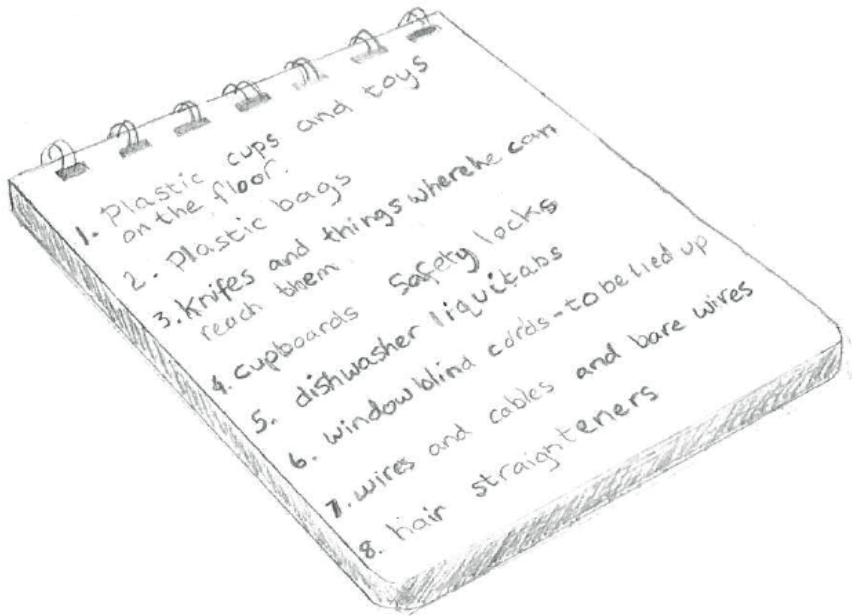 1. Plastic cups and toys
on the floor.
2. Plastic bags
3. Knifes and things where he can
reach them.
4. cupboards safety locks
5. dishwasher liquitabs
6. window blind cords - to be tied up
7. wires and cables and bare wires
8. hair straighteners